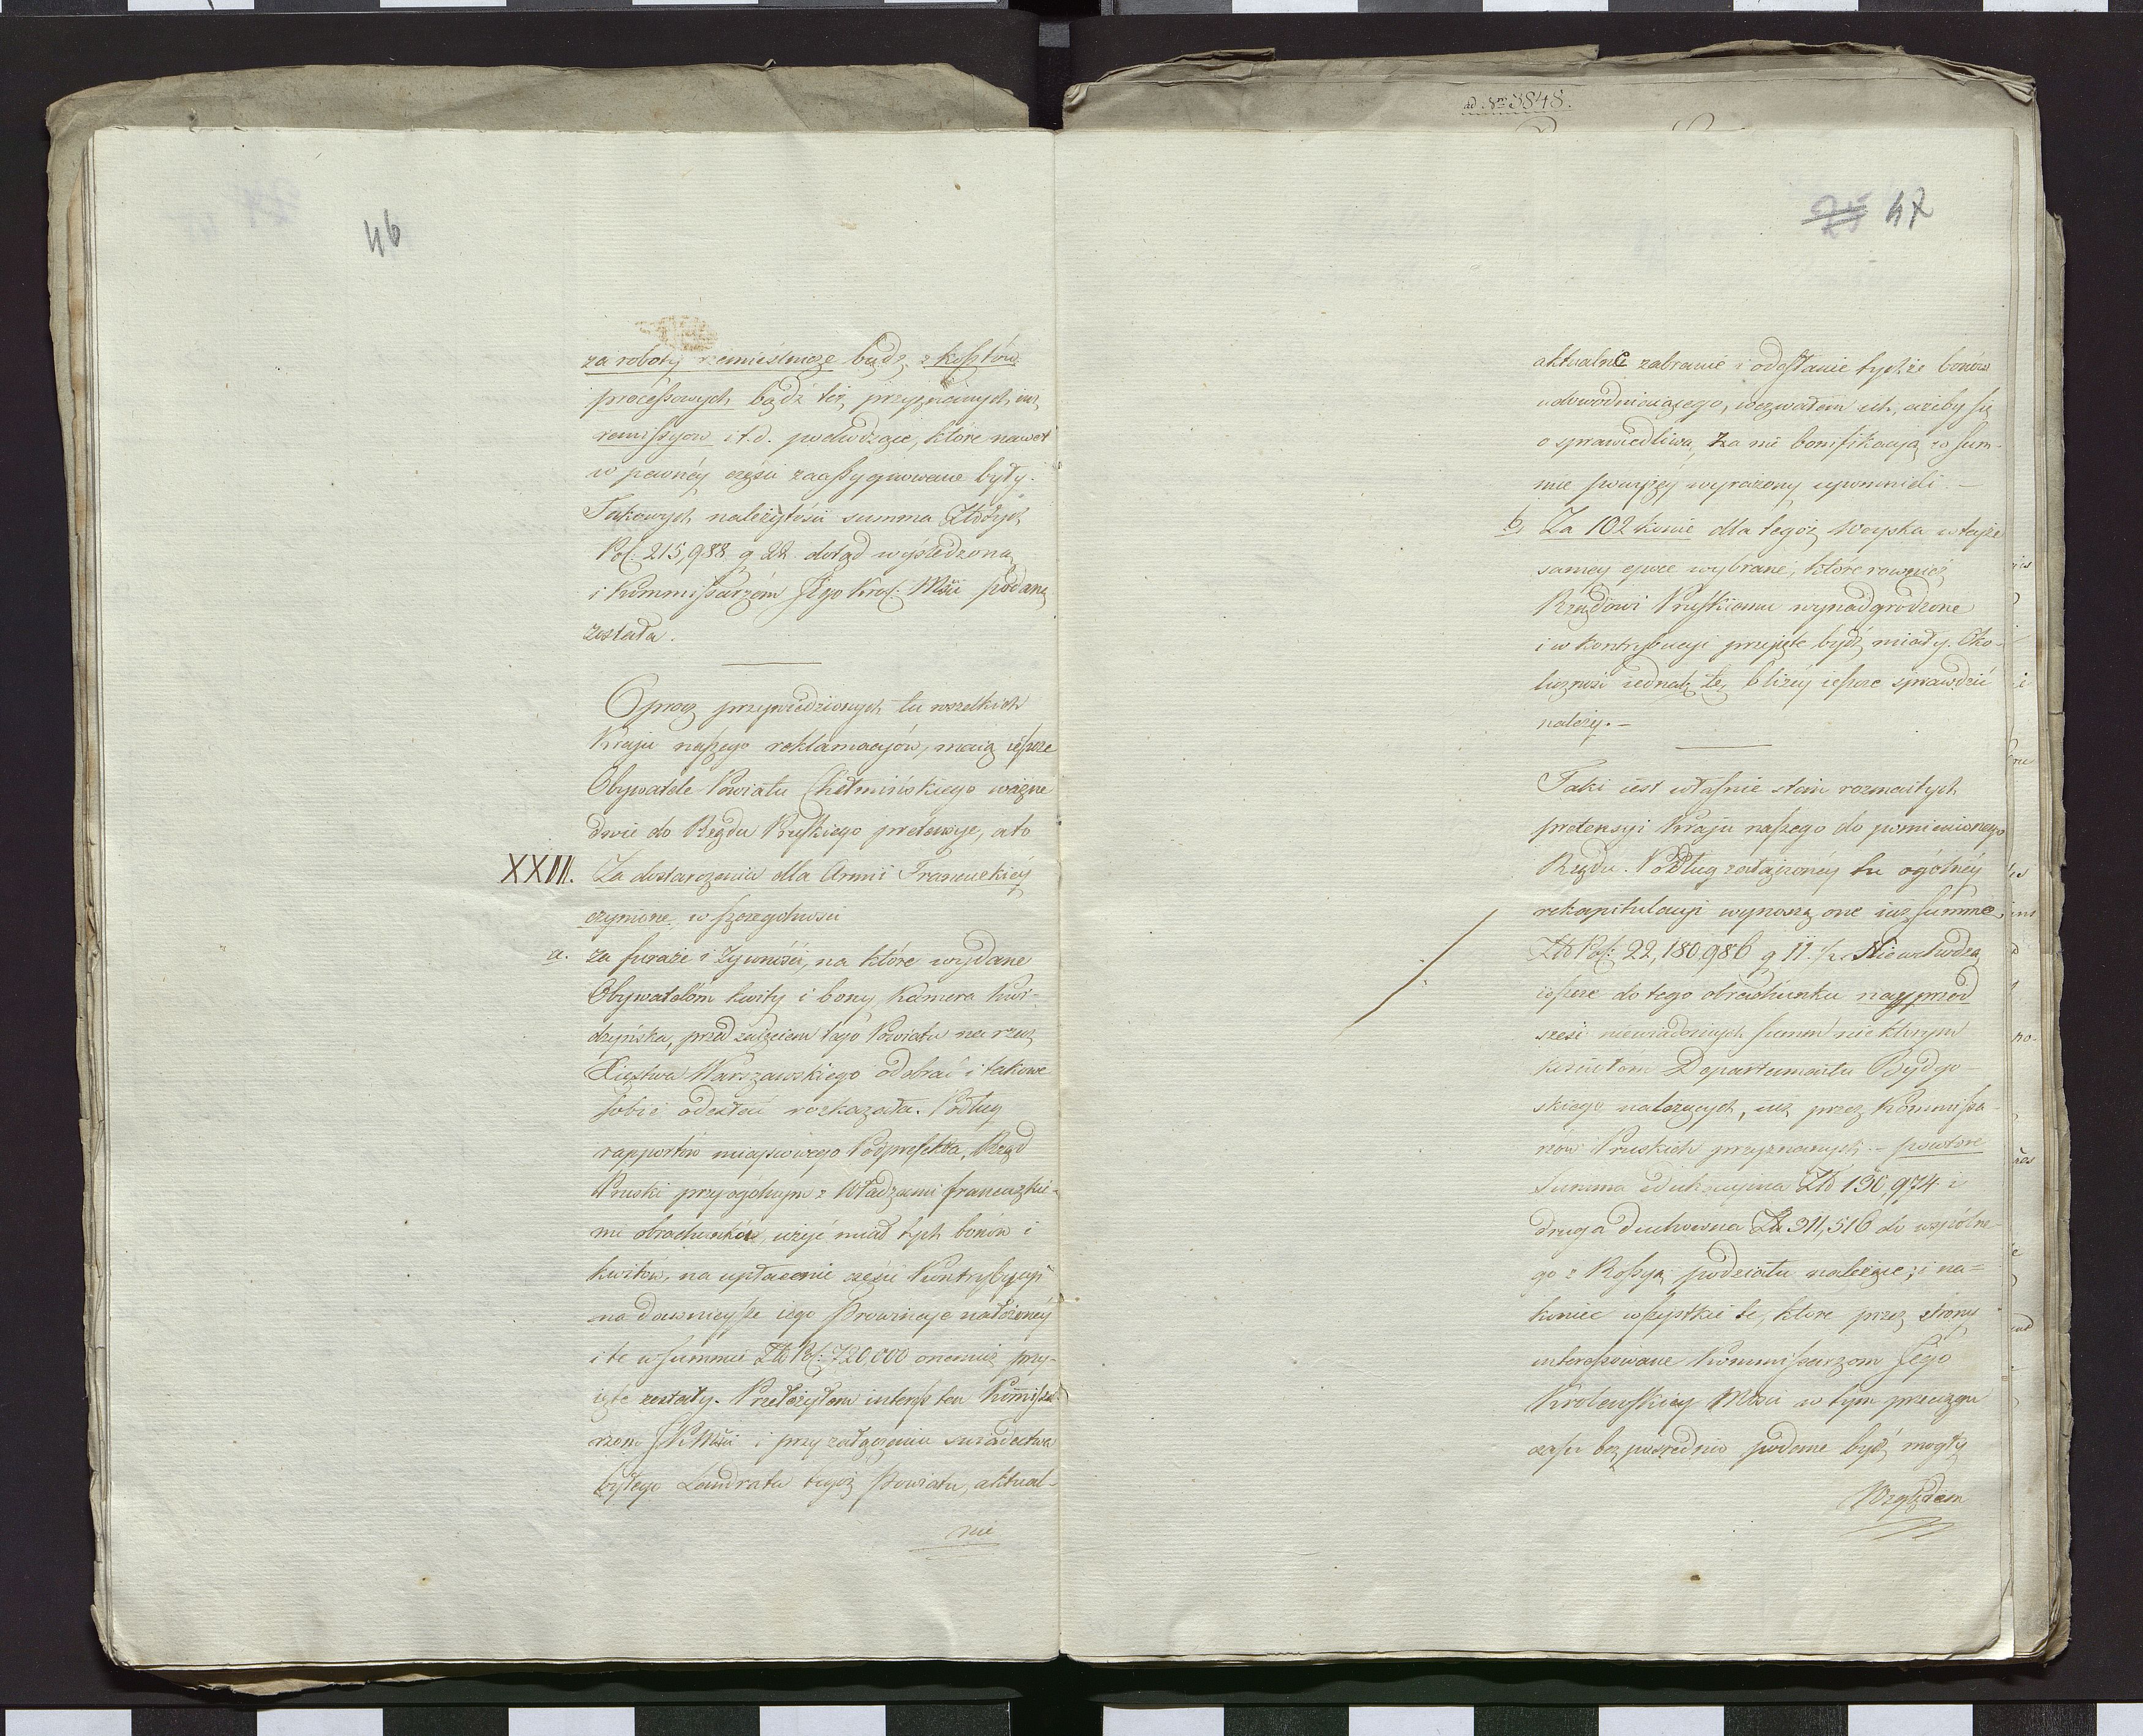 46
za roboty rzemieślnicze bądź z kosztów
processowych bądź też przyznanych im
remissyow i t. d. pochodzące, które nawet
w pewnéy części zaassygnowane były.
Takowych należytości summa Złotych
Pol: 215,988 g 22 dotąd wyśledzoną
i Kommissarzóm Jego Krol: Mści podaną
została.
Oprocz przywiedzionych tu wszelkich
Kraju naszego reklamacyów, maią ieszcze
Obywatele Powiatu Chełmińskiego ważne
dwie do Rządu Pruskiego pretensye, a to
XXIII. Za dostarczenia dla Armii Francuzkiéy
czynione w szczegolności
a. za furaże i żywności, na które wydane
Obywatelóm kwity i bony Kamera Kwi-
dzyńska, przed zaięciem tego Powiatu na rzecz
Xięstwa Warszawskiego odebrać i takowe
sobie odesłać rozkazała. Podług
rapportów mieyscowego Podprefekta, Rząd
Pruski przy ogólnym z Władzami francuzkie-
mi obrachunku, użyć miał tych bonów i
kwitów, na upłacenie części Kontrybucyi
na dawnieysze iego Prowincye nałożonéy
i te w summie Zł Pol: 720,000 onemuż przy-
ięte zostały. Przełożyłem interes ten Kommissa-
rzom JKMści i przy załączeniu świadectwa
byłego Landrata tegoż Powiatu, aktual-
nie
ad Nrm 3848.
25 47
aktualnie zabranie i odesłanie tychże bonów
udowodniaiącego, wezwałem ich, ażeby się
o sprawiedliwą za nie bonifikacyą w sum-
mie powyżéy wyrażony upomnieli. -
b, Za 102 konie dla tegoż Woyska w teyże
samey epoce wybrane, które rownież
Rządowi Pruskiemu wynadgrodzone
i w kontrybucyi przyięte bydź miały. Oko-
liczność iednak tę bliżéy ieszcze sprawdzić
należy. -
Taki iest właśnie stan rozmaitych
pretensyi Kraju naszego do pomienionego
Rządu. Podług załączonéy tu ogólnéy
rekapitulacyi wynoszą one iuż summę
Zło Pol: 22,180,986 g 11 ½. Nie wchodzą
ieszcze do tego obrachunku nayprzod
sześć niewiadomych summ niektorym
kościołom Departamentu Bydgo-
skiego należących, iuż przez Kommissa-
rzow Pruskich przyznanych. - powtore
Summa Edukacyina Zło 130,974 i
druga duchowna Zło 911,516 do wspólne-
go z Rossyą podziału należące; i na=
koniec wszystkie te, ktore przez strony
interessowane Kommissarzom Jego
Krolewskiey Mści w tym przeciągu
czasu bezpośrednio podane być mogły
Względem